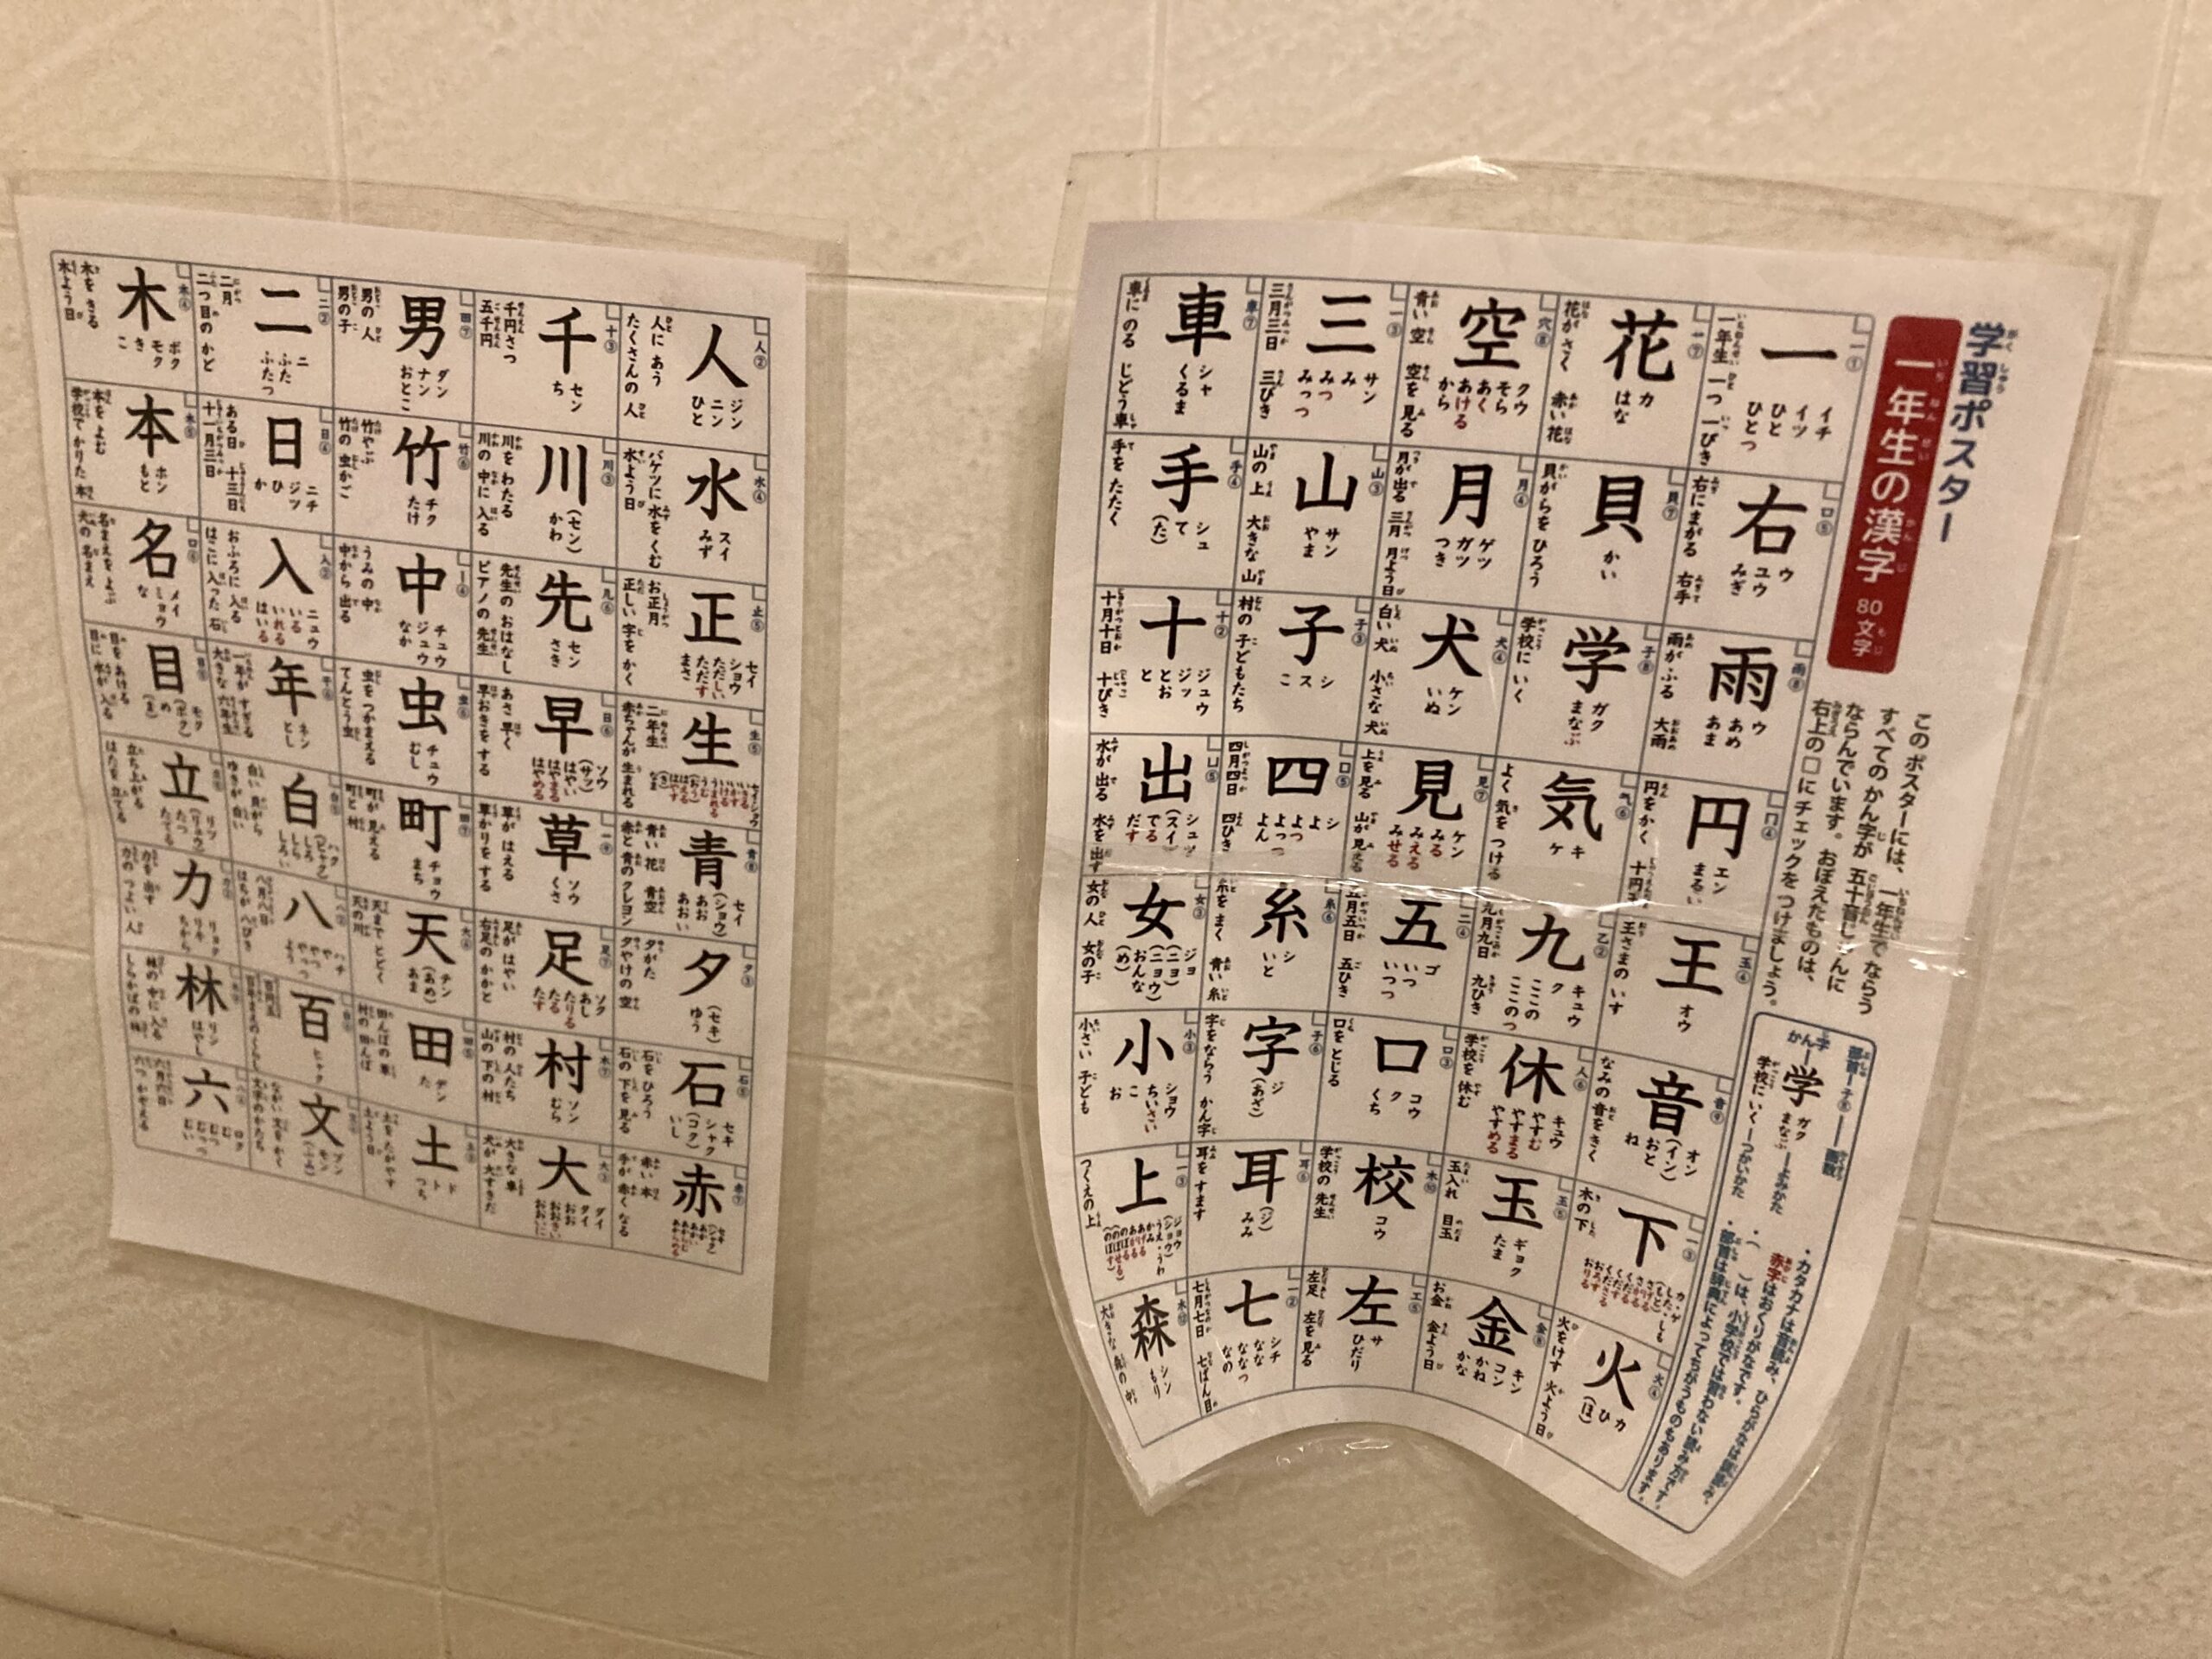 学習ポスター
一年生の漢字 80文字
このポスターには、一年生でならう
すべてのかん字が 五十音じゅんに
ならんでいます。おぼえたものは、
右上の□にチェックをつけましょう。
部首 子⑧ 画数
かん字 学 ガク まなぶ よみかた
学校にいく つかいかた
・カタカナは音読み、ひらがなは訓読み、
赤字はおくりがなです。
・( )は、小学校では習わない読み方です。
・部首は辞典によってちがうものもあります。
一 イチ イツ ひと ひとつ
一年生 一つ 一ぴき
右 ウ ユウ みぎ
右にまがる 右手
雨 ウ あめ あま
雨がふる 大雨
円 エン まるい
円をかく
王 オウ
王さまの いす
音 オン (イン) おと ね
なみの 音をきく
下
木の下
火 カ ひ (ほ)
火をけす 火よう日
花 カ はな
花が さく 赤い花
貝 かい
貝がらを ひろう
学 ガク まなぶ
学校に いく
気 キ ケ
よく 気を つける
九 キュウ ク ここの ここのつ
九月九日 九ひき
休 キュウ やすむ やすまる やすめる
学校を 休む
玉 ギョク たま
玉入れ 目玉
金 キン コン かね かな
お金 金よう日
空 クウ そら あく あける から
青い 空 空を 見る
月 ゲツ ガツ つき
月が出る 三月 月よう日
犬 ケン いぬ
白い 犬 小さな 犬
見 ケン みる みえる みせる
上を見る 山が 見える
五 ゴ いつ いつつ
五月五日 五ひき
口 コウ ク くち
口を とじる
校 コウ
学校の 先生
左 サ ひだり
左足 左を 見る
三 サン み みつ みっつ
三月三日 三びき
山 サン やま
山の 上 大きな 山
子 シ ス こ
村の 子どもたち
四 シ よ よつ よっつ よん
四月四日 四ひき
糸 シ いと
糸を まく 青い 糸
字 ジ (あざ)
字をならう かん字
耳 (ジ) みみ
耳を すます
七 シチ なな ななつ なの
七月七日 七ばん目
車 シャ くるま
車に のる じどう車
手 シュ て (た)
手を たたく
十 ジュウ ジッ とお と
十月十日 十ぴき
出 シュツ (スイ) でる だす
水が 出る 水を 出す
女 ジョ (ニョ) (ニョウ) おんな (め)
女の人 女の子
小 ショウ ちいさい こ お
小さい 子ども
上
つくえの上
森 シン もり
大きな 森の 中
人 ジン ニン ひと
人に あう
たくさんの 人
水 スイ みず
バケツに 水を くむ
水よう日
正 セイ ショウ ただしい ただす まさ
お正月
正しい 字を かく
生
二年生
赤ちゃんが 生まれる
青 セイ (ショウ) あお あおい
青い 花 青空
赤と 青のクレヨン
夕 (セキ) ゆう
夕がた
夕やけの 空
石 セキ シャク (コク) いし
石を ひろう
石の 下を 見る
赤
赤い 本
手が 赤く なる
千 セン ち
千円さつ
五千円
川 (セン) かわ
川を わたる
川の 中に 入る
先 セン さき
先生の おはなし
ピアノの 先生
早 ソウ (サッ) はやい はやまる はやめる
あさ 早く
早おきを する
草 ソウ くさ
草が はえる
草かりを する
足 ソク あし たりる たる たす
足が はやい
右足の かかと
村 ソン むら
村の 人たち
山の 下の 村
大 ダイ タイ おお おおきい おおいに
大きな 車
犬が 大すきだ
男 ダン ナン おとこ
男の 人
男の子
竹 チク たけ
竹やぶ
竹の 虫かご
中 チュウ ジュウ なか
うみの 中
中から 出る
虫 チュウ むし
虫を つかまえる
てんとう虫
町 チョウ まち
町が 見える
町と 村
天 テン (あめ) あま
天まで とどく
天の川
田 デン た
田んぼの 草
村の 田んぼ
土 ド ト つち
土を たがやす
土よう日
二 ニ ふた ふたつ
二月
二つ目の かど
日 ニチ ジツ ひ か
ある日 十三日
十一月三日
入 ニュウ いる いれる はいる
おふろに 入る
はこに 入った 石
年 ネン とし
一年が すぎる
大きな 六年生
白 ハク (ビャク) しろ しら しろい
白い 貝がら
ゆきが 白い
八 ハチ や やつ やっつ よう
八月八日
はちが 八ぴき
百 ヒャク
百円玉
文 ブン モン (ふみ)
ながい 文を かく
文字の かたち
木 ボク モク き こ
木を きる
木よう日
本 ホン もと
本を よむ
学校で かりた 本
名 メイ ミョウ な
名まえを よぶ
犬の 名まえ
目 モク (ボク) め (ま)
目を あける
目に 水が 入る
立 リツ (リュウ) たつ たてる
立ち上がる
はたを 立てる
力 リョク リキ ちから
力を 出す
力の つよい 人
林 リン はやし
林の 中に 入る
しらかばの 林
六 ロク む むつ むっつ むい
六月六日
六つ かぞえる